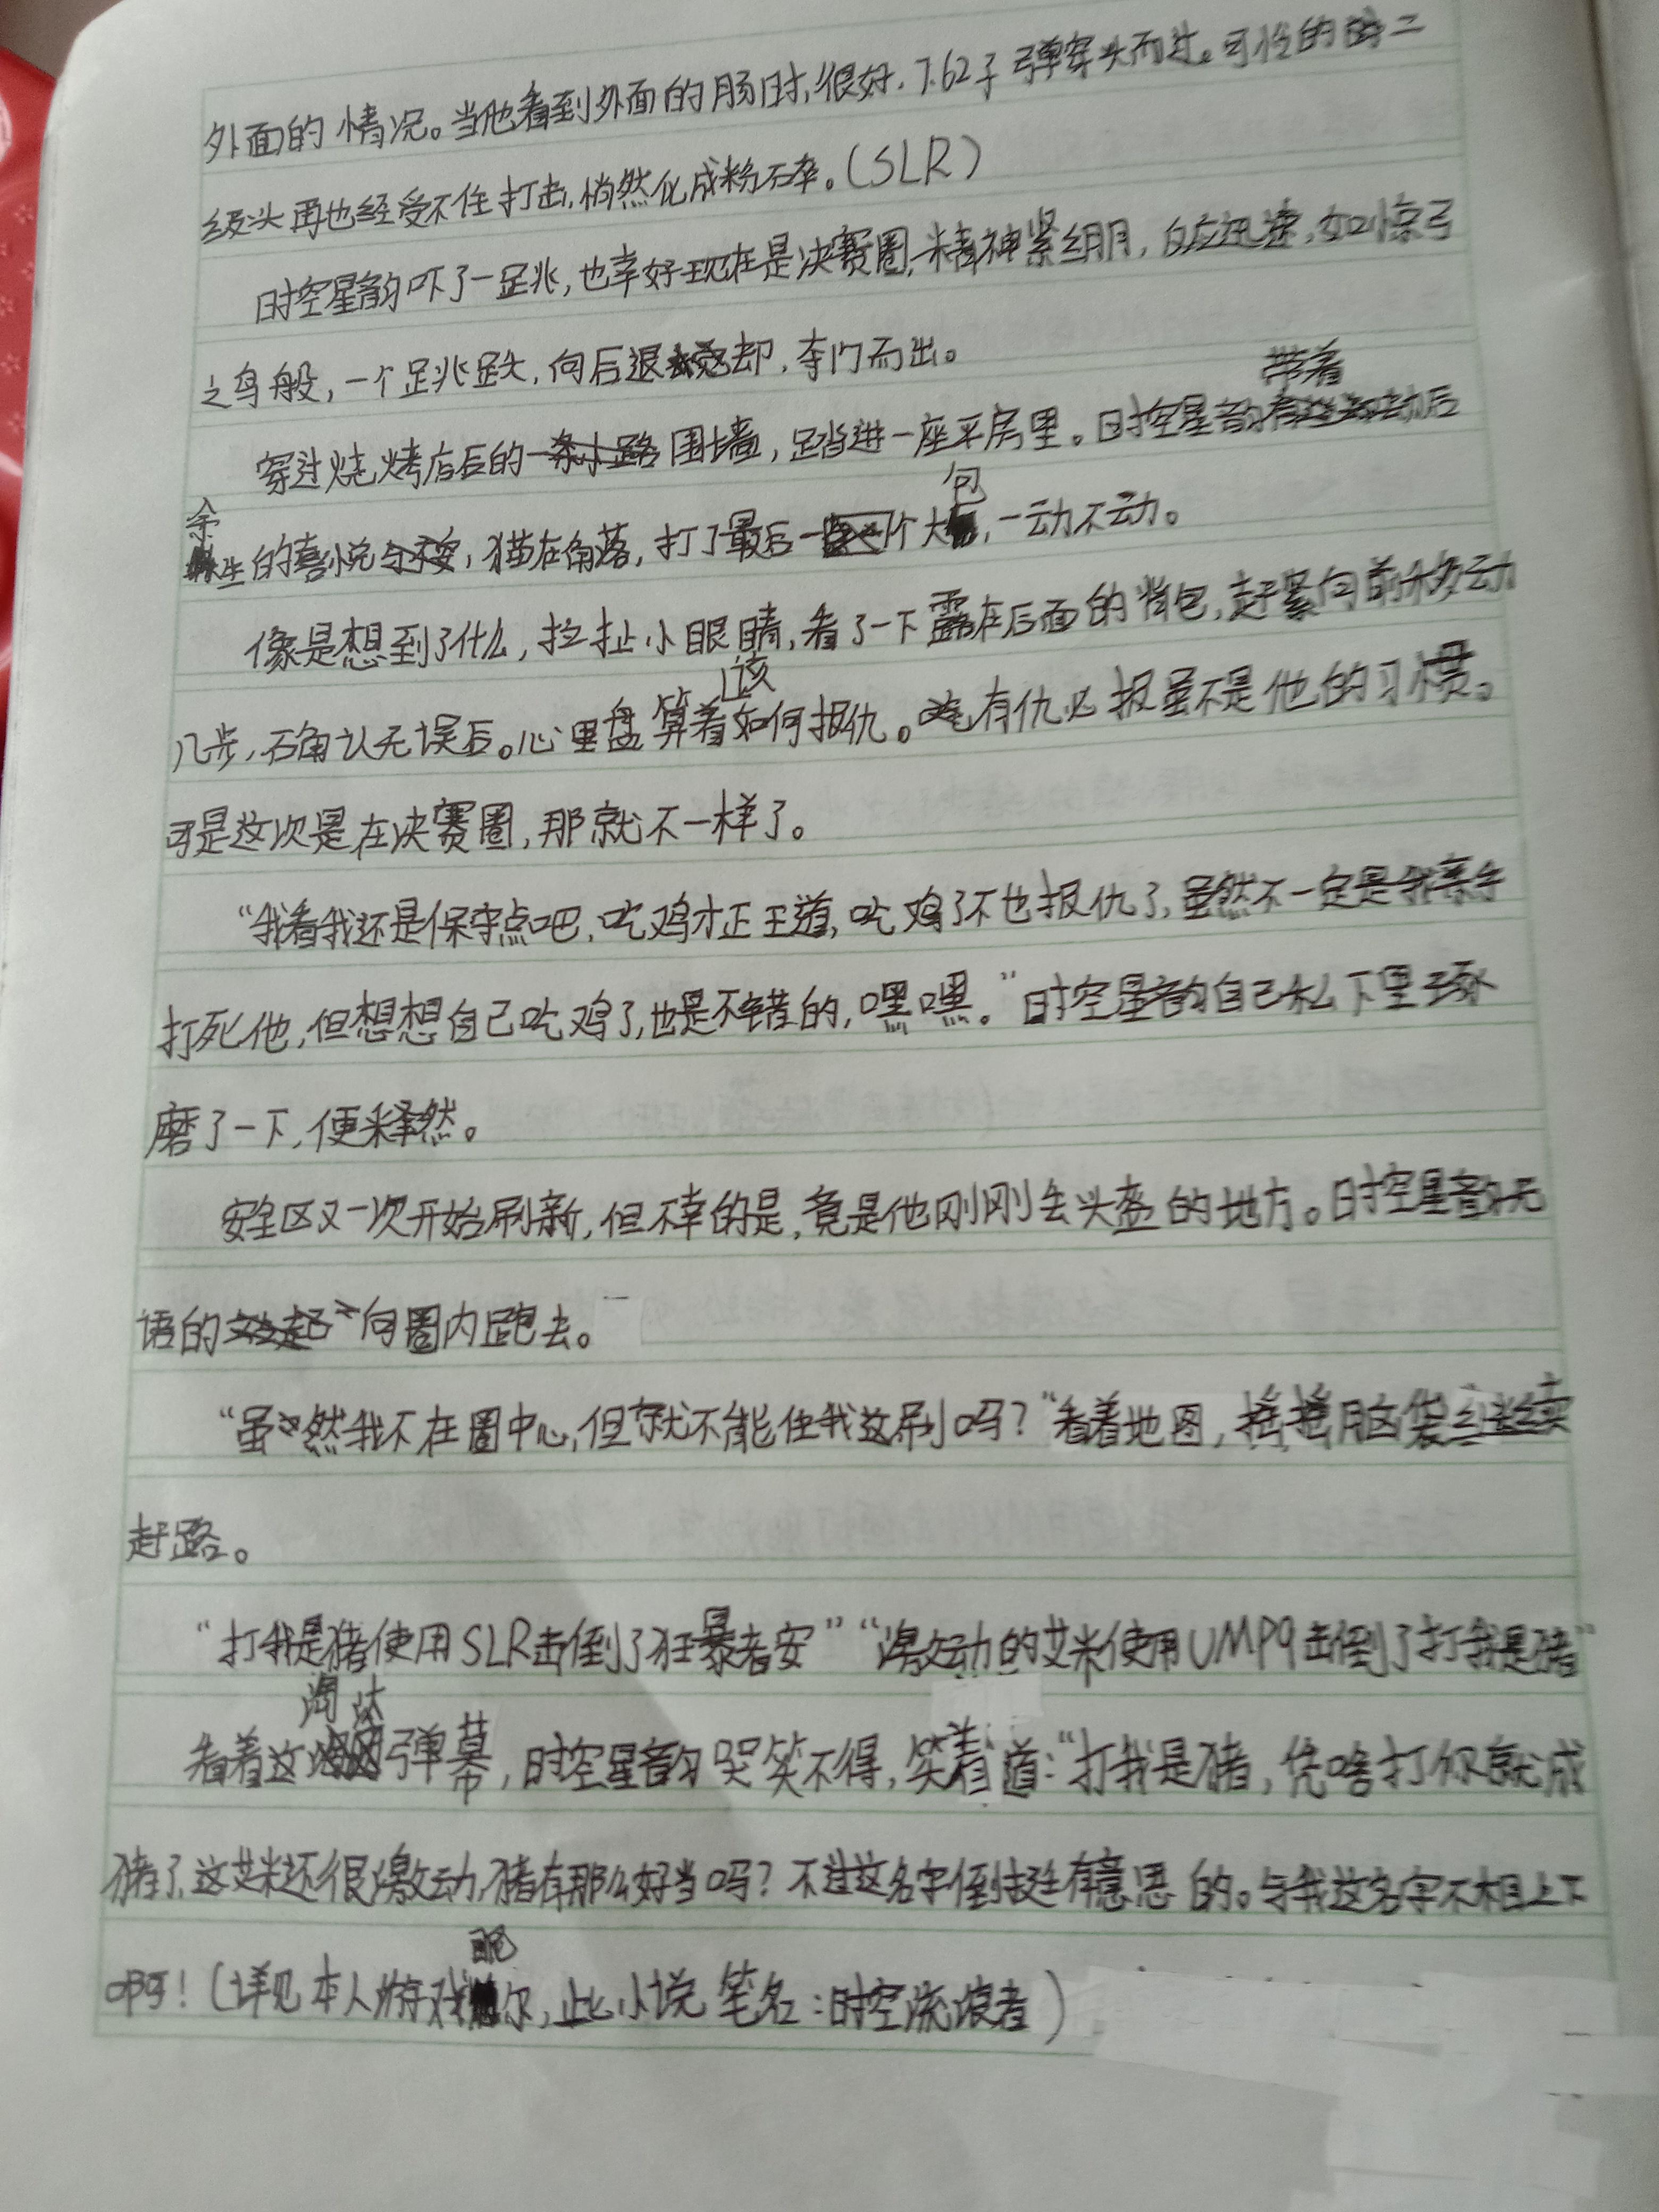 外面的情况。当他看到外面的肠时,很好,7.62子弹穿头而过。可怜的的二
级头再也经受不住打击,悄然化成粉碎。(SLR)
时空星韵吓了一跳,也幸好现在是决赛圈,精神紧绷,反应迅速,如惊弓
之鸟般,一个跳跃,向后退却,夺门而出。
穿过烧烤店后的围墙,踏进一座平房里。时空星韵带着后
余生的喜悦,猫在角落,打了最后一个大包,一动不动。
像是想到了什么,拉扯小眼睛,看了一下露在后面的背包,赶紧向前移动
几步,确认无误后。心里盘算着该如何报仇。有仇必报虽不是他的习惯。
可是这次是在决赛圈,那就不一样了。
“我看我还是保守点吧,吃鸡才正王道,吃鸡了不也报仇了,虽然不一定是我亲手
打死他,但想想自己吃鸡了,也是不错的,嘿嘿。”时空星韵自己私下里琢
磨了一下,便释然。
安全区又一次开始刷新,但不幸的是,竟是他刚刚丢头盔的地方。时空星韵无
语的向圈内跑去。
“虽然我不在圈中心,但就不能往我这刷吗?”看着地图,摇摇脑袋继续
赶路。
“打我是猪使用SLR击倒了狂暴者安”“激动的艾米使用UMP9击倒了打我是猪”
看着这淘汰弹幕,时空星韵哭笑不得,笑着道:“打我是猪,凭啥打你就成
猪了,这艾米还很激动,猪有那么好当吗?不过这名字倒挺有意思的。与我这名字不相上下
啊!(详见本人游戏昵尔,此小说笔名:时空流浪者)